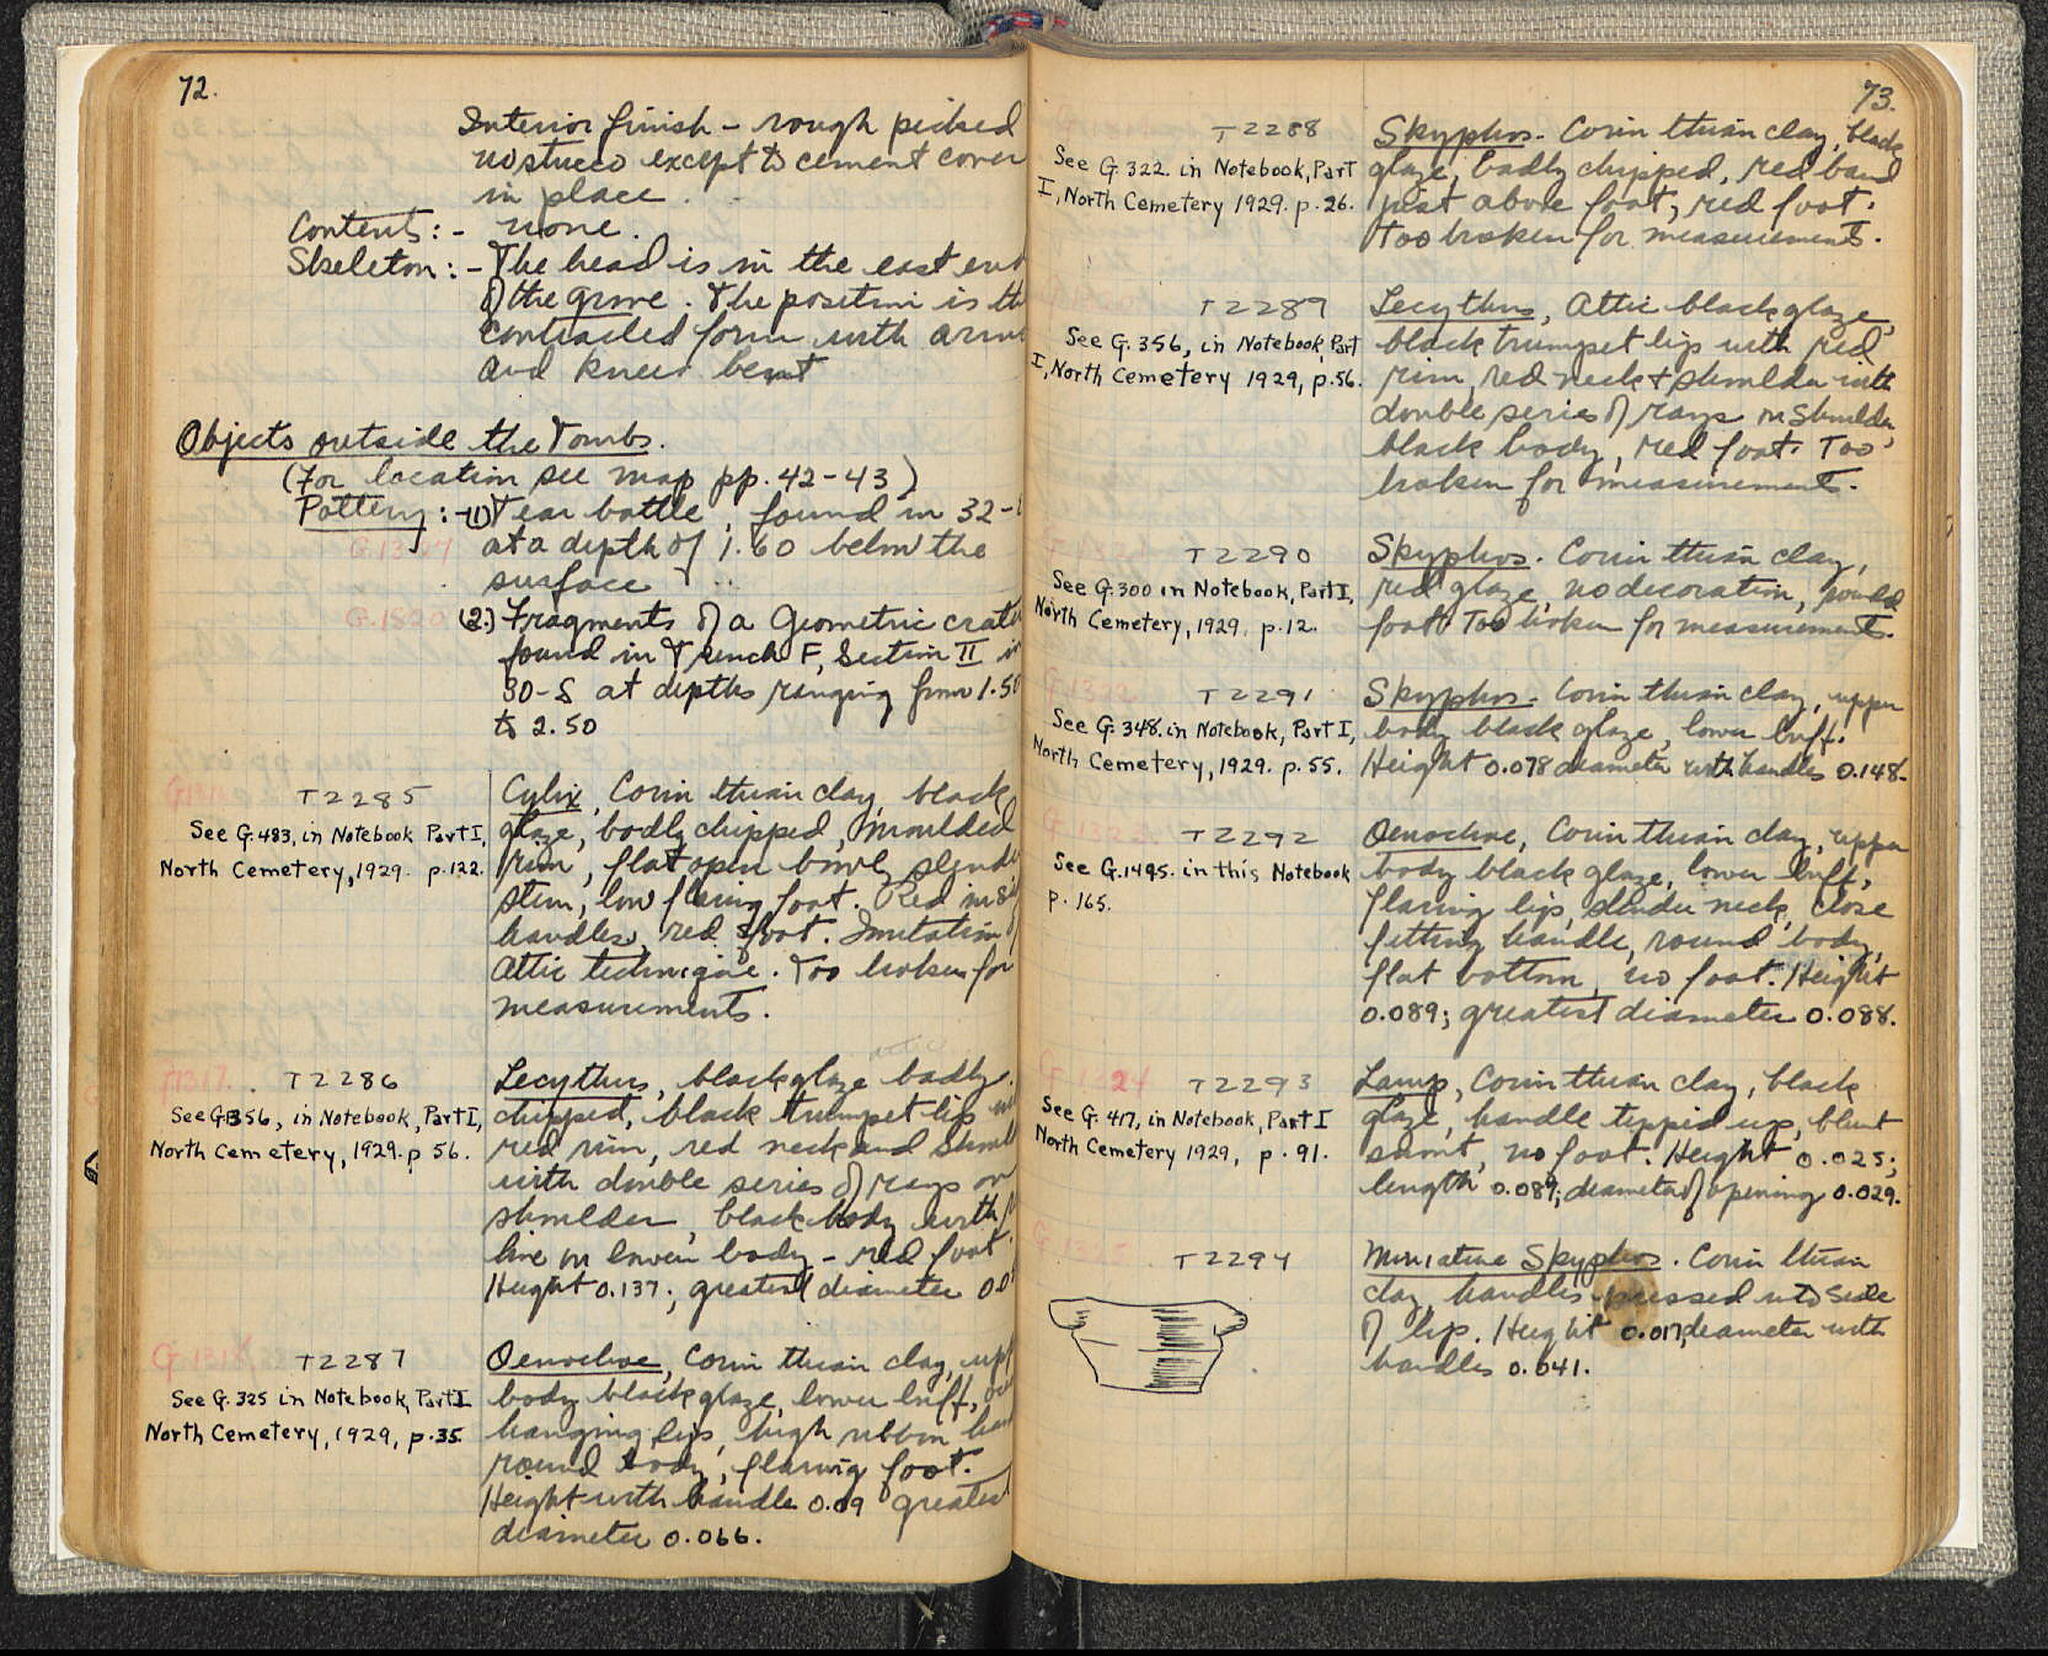 72.
Interior finish - rough picked
no stucco except to cement cover
in place.
Contents: - none.
Skeleton: - The head is in the east end
of the grave. The position is the
contracted form with arms
and knees bent
Objects outside the Tombs.
(For location see map pp. 42-43)
Pottery: - (1) Tear bottle, found in 32-
at a depth of 1.60 below the
surface
G.1320 (2.) Fragments of a Geometric crater
found in Trench F, Section II in
30-S at depths ranging from 1.50
to 2.50
T2285
See G.483, in Notebook Part I,
North Cemetery, 1929. p.122.
Cylix, Corinthian clay, black
glaze, badly chipped, moulded
rim, flat open bowl, slender
stem, low flaring foot. Red inside
handles, red foot. Imitation of
Attic technique. Too broken for
measurements.
G1317. T2286
See G.356, in Notebook, Part I,
North Cemetery, 1929. p 56.
attic
Lecythus, black glaze badly
chipped, black trumpet lip with
red rim, red neck and shoulder
with double series of rays on
shoulder, black body with
line on lower body - red foot.
Height 0.137; greatest diameter 0.0
G.1318. T2287
See G.325 in Notebook, Part I
North Cemetery, 1929, p.35
Oenochoe, Corinthian clay, upper
body black glaze, lower buff, over
hanging lip, high ribbon handle
round body, flaring foot.
Height with handle 0.09 greatest
diameter 0.066.
73.
T2288
See G.322. in Notebook, Part
I, North Cemetery 1929. p.26.
Skyphos. Corinthian clay, black
glaze, badly chipped, red band
just above foot, red foot.
Too broken for measurements.
T2289
See G.356, in Notebook, Part
I, North Cemetery 1929, p.56.
Lecythus, Attic black glaze,
black trumpet lip with red
rim, red neck + shoulder with
double series of rays on shoulder,
black body, red foot. Too
broken for measurements.
T2290
See G.300 in Notebook, Part I,
North Cemetery, 1929, p.12.
Skyphos. Corinthian clay,
red glaze, no decoration, round
foot. Too broken for measurements.
T2291
See G.348. in Notebook, Part I,
North Cemetery, 1929. p.55.
Skyphos. Corinthian clay, upper
body black glaze, lower buff.
Height 0.078 diameter with handles 0.148.
T2292
See G.1495. in this Notebook
p. 165.
Oenochoe, Corinthian clay, upper
body black glaze, lower buff,
flaring lip, slender neck, close
fitting handle, round body,
flat bottom, no foot. Height
0.089; greatest diameter 0.088.
G.1324 T2293
See G.417, in Notebook, Part I
North Cemetery 1929, p.91.
Lamp, Corinthian clay, black
glaze, handle tipped up, blunt
snout, no foot. Height 0.025;
length 0.089; diameter of opening 0.029.
G.1325 T2294
Miniature Skyphos. Corinthian
clay, handles pressed into side
of lip. Height 0.017, diameter with
handles 0.041.